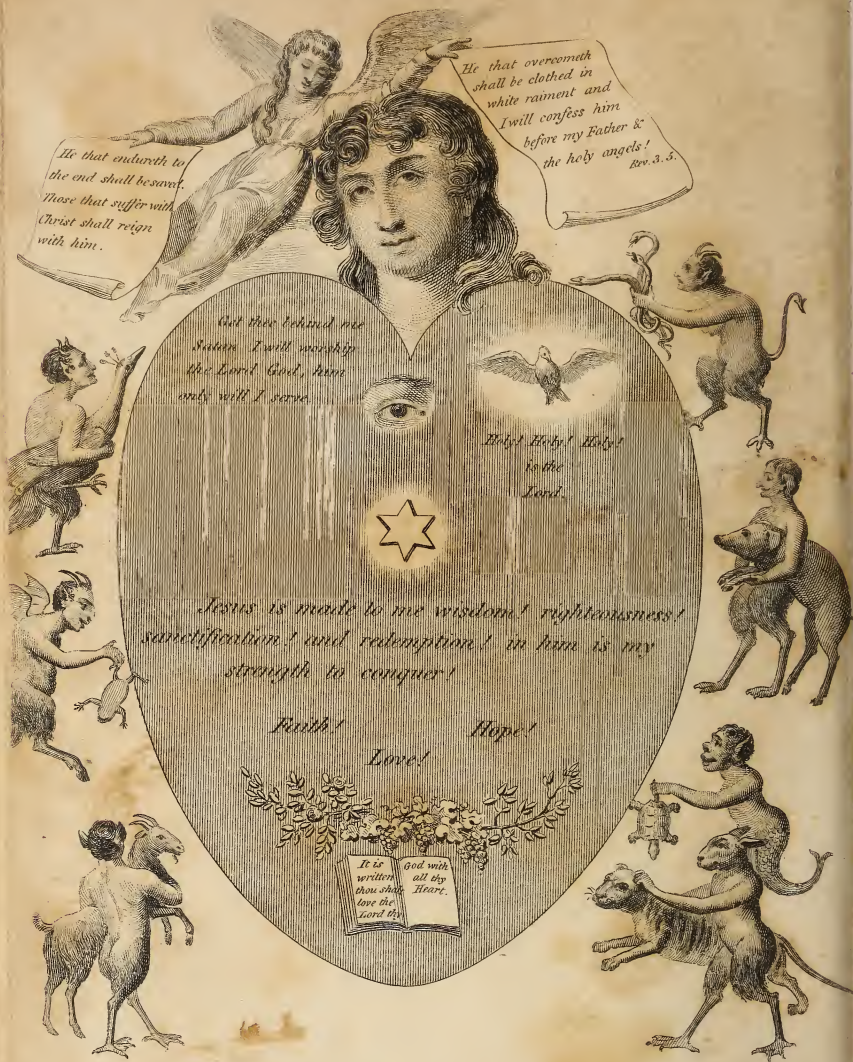 He that endureth to
the end shall be saved.
Those that suffer with
Christ shall reign
with him.
He that overcometh
shall be clothed in
white raiment and
I will confess him
before my Father &
the holy angels!
Rev. 3. 5.
Get thee behind me
Satan I will worship
the Lord God, him
only will I serve.
Holy! Holy! Holy!
is the
Lord.
Jesus is made to me wisdom! righteousness!
sanctification! and redemption! in him is my
strength to conquer!
Faith! Hope!
Love!
It is
written
thou shal
love the
Lord thy
God with
all thy
Heart.